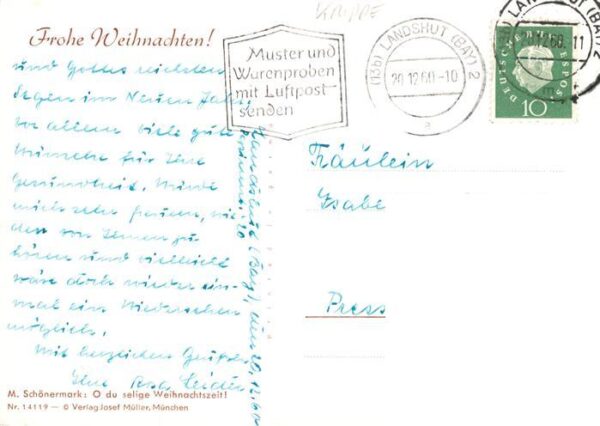 KRIPPE
Frohe Weihnachten!
und Gottes reichsten
Segen im Neuen Jahr,
vor allem viele gute
Wünsche für Ihre
Gesundheit. Würde
mich sehr freuen, wie-
der von Ihnen zu
hören und vielleicht
wäre doch wieder ein-
mal ein Wiedersehen
möglich.
Mit herzlichen Grüßen
Ihre Rosa
M. Schönermark: O du selige Weihnachtszeit!
Nr. 14119 — © Verlag Josef Müller, München
Landshut (Bay), den 20.12.60
Muster und
Warenproben
mit Luftpost
senden
(13b) LANDSHUT (BAY) 2
20.12.60.-10
a
LANDSHUT (BAY) 2
12.60.11
DEUTSCHE BUNDESPOST
10
Fräulein
Isabe
Press